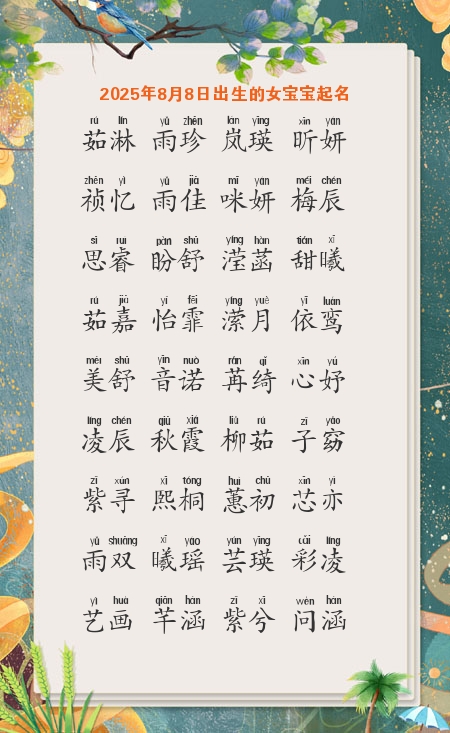 2025年8月8日出生的女宝宝起名
rú lín yǔ zhēn lán yīng xīn yán
茹淋 雨珍 岚瑛 昕妍
zhēn yì yǔ jiā mī yán méi chén
祯忆 雨佳 咪妍 梅辰
sī ruì pàn shū yíng hàn tián xī
思睿 盼舒 滢菡 甜曦
rú jiā yí fēi yíng yuè yī luán
茹嘉 怡霏 潆月 依鸾
měi shū yīn nuò rǎn qǐ xīn yú
美舒 音诺 苒绮 心妤
líng chén qiū xiá liǔ rú zǐ yǎo
凌辰 秋霞 柳茹 子窈
zǐ xún xī tóng huì chū xīn yì
紫寻 熙桐 蕙初 芯亦
yǔ shuāng xī yáo yún yīng cǎi líng
雨双 曦瑶 芸瑛 彩凌
yì huà qiān hán zǐ xī wèn hán
艺画 芊涵 紫兮 问涵